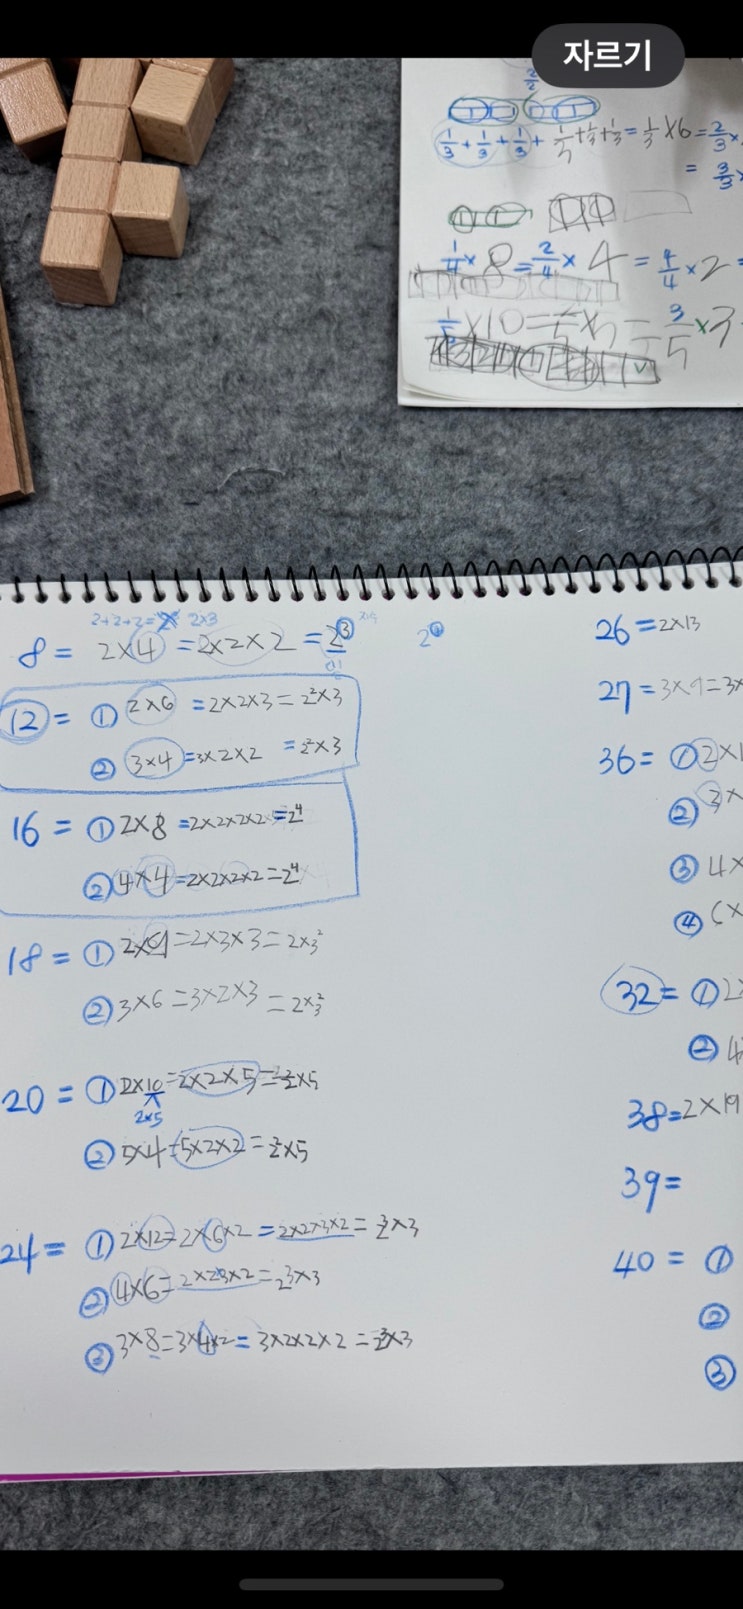 자르기
1/3 + 1/3 + 1/3 + 1/3 + 1/3 + 1/3 = 1/3 × 6 = 2/3 ×
= 3/3 ×
1/4 × 8 = 2/4 × 4 = 4/4 × 2 =
×10 = = 3/5 × 3
2+2+2= 2×3
8 = 2×4 = 2×2×2 = 2³
12 = ① 2×6 = 2×2×3 = 2²×3
② 3×4 = 3×2×2 = 2²×3
16 = ① 2×8 = 2×2×2×2 = 2⁴
② 4×4 = 2×2×2×2 = 2⁴
18 = ① 2×9 = 2×3×3 = 2×3²
② 3×6 = 3×2×3 = 2×3²
20 = ① 2×10 = 2×2×5 = 2²×5
2×5
② 5×4 = 5×2×2 = 2²×5
24 = ① 2×12 = 2×6×2 = 2×2×3×2 = 2³×3
② 4×6 = 2×2×3×2 = 2³×3
③ 3×8 = 3×4×2 = 3×2×2×2 = 2³×3
26 = 2×13
27 = 3×9 = 3×
36 = ① 2×1
② 3×
③ 4×
④ 6×
32 = ① 2×
② 4
38 = 2×19
39 =
40 = ①
②
③